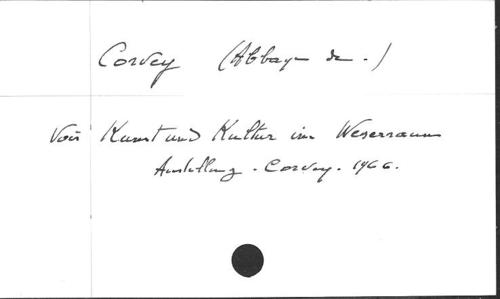 Corvey (Abbaye de.)
Voir Kunst und Kultur im Weserraum
Ausstellung. Corvey. 1966.